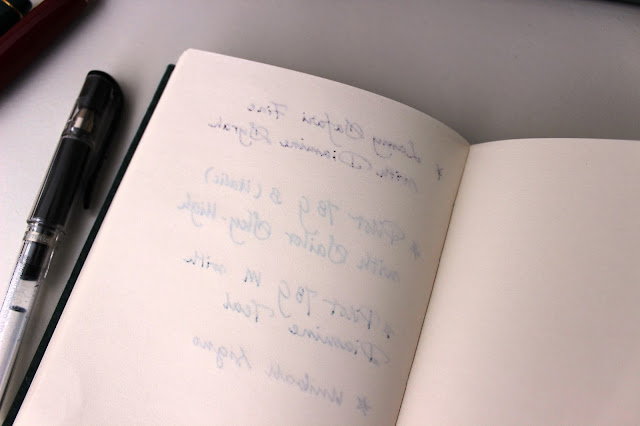 * Lamy Safari Fine
with Diamine Syrah
* Pilot 78G B (Italic)
with Sailor Sky-High
* Pilot 78G M with
Diamine Teal
* Uniball Signo